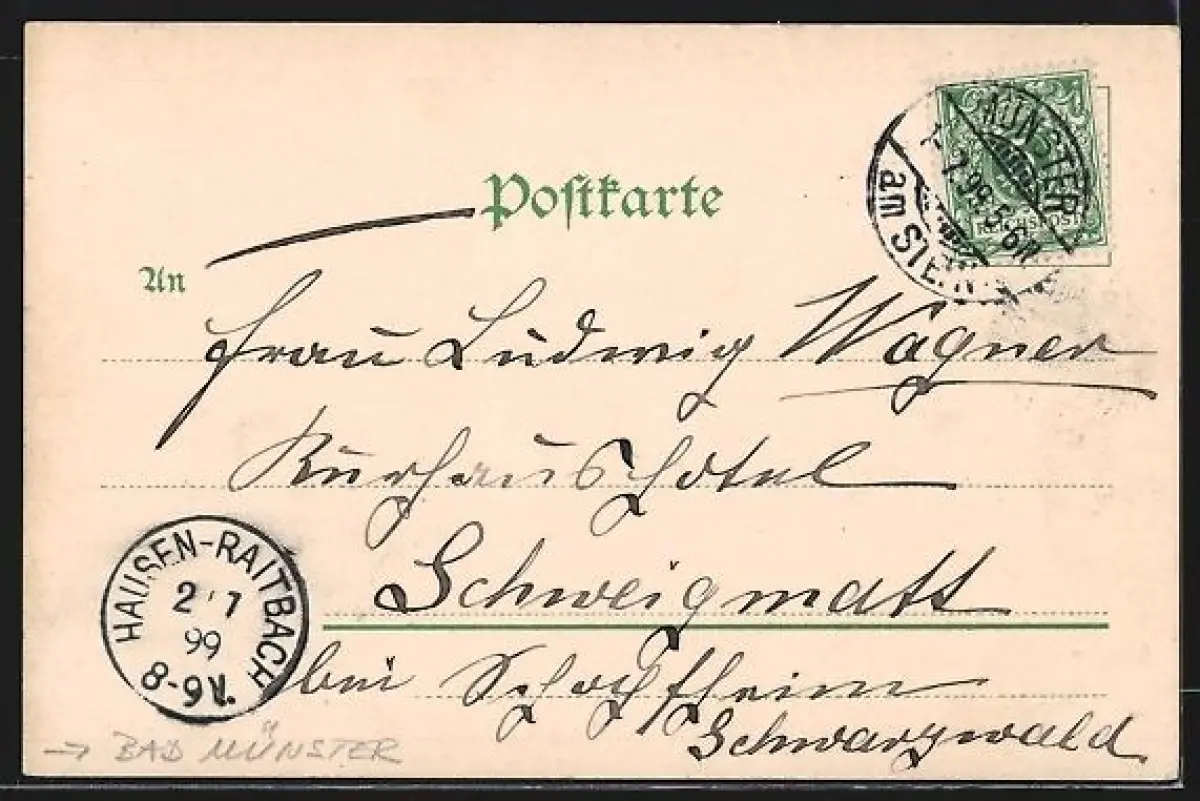 Postkarte
MÜNSTER
1. 7. 99. 5-6N.
am STEIN.
REICHSPOST
An
Frau Ludwig Wagner
Kurhaus Hotel
Schweigmatt
bei Schopfheim
Schwarzwald
HAUSEN-RAITBACH
2 7
99
8-9V.
→ BAD MÜNSTER